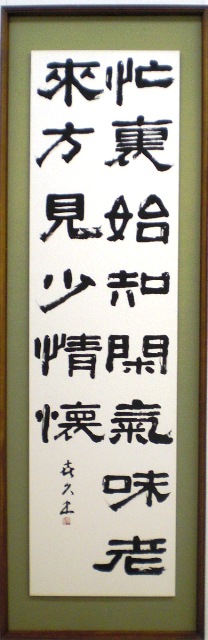 忙裏始知閑氣味老
來方見少情懷